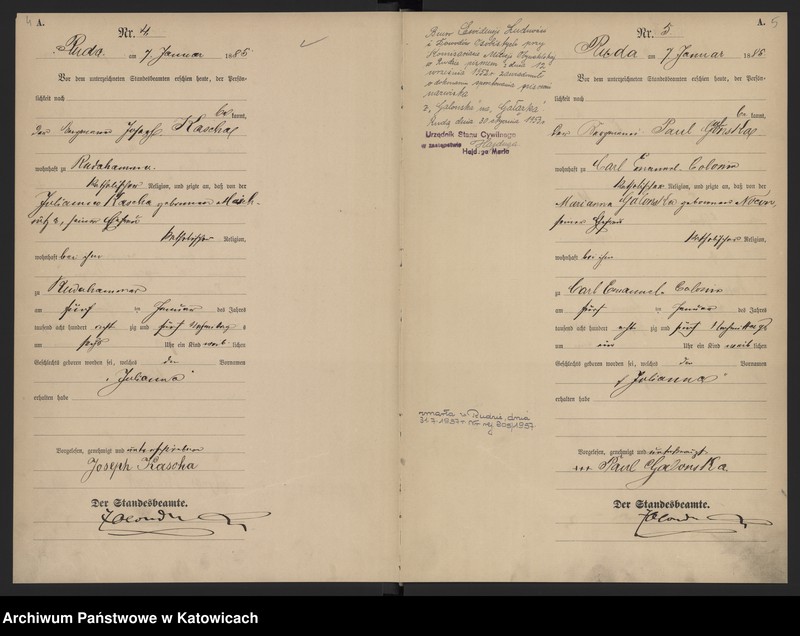 4 A.
Nr. 4
Ruda am 7 Januar 1885
Vor dem unterzeichneten Standesbeamten erschien heute, der Persön-
lichkeit nach
be kannt,
der Bergmann Joseph Kascha
wohnhaft zu Rudahammer
katholischer Religion, und zeigte an, daß von der
Julianna Kascha geborenen
seiner Ehefrau
katholischer Religion,
wohnhaft bei ihm
zu Rudahammer
am fünf ten Januar des Jahres
tausend acht hundert acht zig und fünf Nachmittag s
um sechs Uhr ein Kind weib lichen
Geschlechts geboren worden sei, welches den Vornamen
„Julianna"
erhalten habe
Vorgelesen, genehmigt und unterschrieben
Joseph Kascha
Der Standesbeamte.
Biuro Ewidencji Ludności
i Dowodów Osobistych przy
Komisariacie Milicji Obywatelskiej
w Rudzie pismem z dnia 12
września 1952 r. zawiadomiło
o dokonaniu sprostowania pisowni
nazwiska
z "Galonska" na "Gałązka"
Ruda dnia 1953 r.
Urzędnik Stanu Cywilnego
w zastępstwie
Hajduga Maria
zmarła w Rudzie, dnia
31.7.1957 r. Nr rej 305/1957
A. 5
Nr. 5
Ruda am 7 Januar 1885
Vor dem unterzeichneten Standesbeamten erschien heute, der Persön-
lichkeit nach
be kannt,
der Bergmann Paul Galonska
wohnhaft zu Carl Emanuel Colonie
katholischer Religion, und zeigte an, daß von der
Marianna Galonska geborenen
seiner Ehefrau
katholischer Religion,
wohnhaft bei ihm
zu Carl Emanuel Colonie
am fünf ten Januar des Jahres
tausend acht hundert acht zig und fünf Nachmittags
um ein Uhr ein Kind weib lichen
Geschlechts geboren worden sei, welches den Vornamen
„Julianna"
erhalten habe
Vorgelesen, genehmigt und
+++ Paul Galonska.
Der Standesbeamte.
Archiwum Państwowe w Katowicach